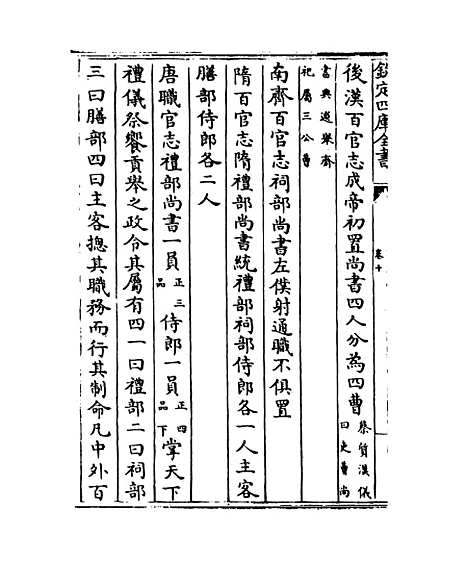 欽定四庫全書
卷十
後漢百官志成帝初置尚書四人分為四曹蔡質漢儀曰史曹尚
書典選舉齋祀屬三公曹
南齊百官志祠部尚書左僕射通職不俱置
隋百官志隋禮部尚書統禮部祠部侍郎各一人主客
膳部侍郎各二人
唐職官志禮部尚書一員正三品侍郎一員正四品下掌天下
禮儀祭饗貢舉之政令其屬有四一曰禮部二曰祠部
三曰膳部四曰主客摠其職務而行其制命凡中外百